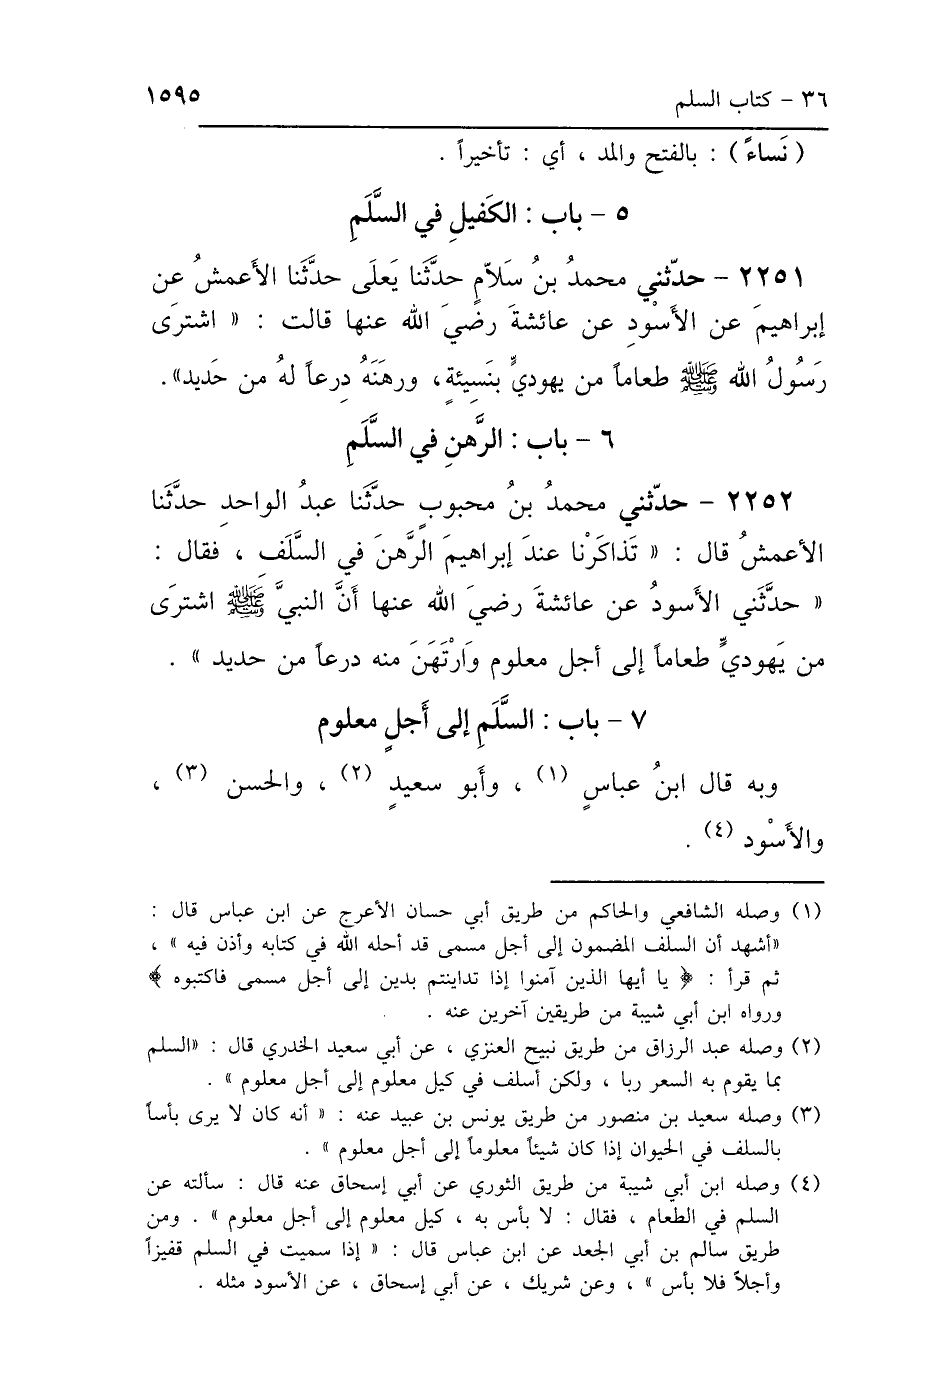 ٣٦ - كتاب السلم
١٥٩٥
( نَساءً ) : بالفتح والمد ، أي : تأخيراً .
٥ - باب : الكَفيلِ في السَّلَمِ
٢٢٥١ - حدّثني محمدُ بنُ سَلاّمٍ حدَّثَنا يَعلَى حدَّثَنا الأَعمشُ عن
إبراهيمَ عن الأَسْودِ عن عائشةَ رضيَ الله عنها قالت : « اشترَى
رَسُولُ الله ﷺ طعاماً من يهوديٍّ بنَسيئةٍ، ورهَنَهُ دِرعاً لهُ من حَديد».
٦ - باب : الرَّهنِ في السَّلَمِ
٢٢٥٢ - حدّثني محمدُ بنُ محبوبٍ حدَّثَنا عبدُ الواحدِ حدَّثَنا
الأعمشُ قال : « تَذاكَرْنا عندَ إبراهيمَ الرَّهنَ في السَّلَفِ ، فقال :
« حدَّثَني الأسودُ عن عائشةَ رضيَ الله عنها أَنَّ النبيَّ ﷺ اشترَى
من يَهوديٍّ طعاماً إلى أجل معلوم وَارْتَهَنَ منه درعاً من حديد » .
٧ - باب : السَّلَمِ إلى أَجلٍ معلوم
وبه قال ابنُ عباسٍ (١) ، وأَبو سعيدٍ (٢) ، والحسن (٣) ،
والأَسْود (٤) .
(١) وصله الشافعي والحاكم من طريق أبي حسان الأعرج عن ابن عباس قال :
«أشهد أن السلف المضمون إلى أجل مسمى قد أحله الله في كتابه وأذن فيه » ،
ثم قرأ : ﴿ يا أيها الذين آمنوا إذا تداينتم بدين إلى أجل مسمى فاكتبوه ﴾
ورواه ابن أبي شيبة من طريقين آخرين عنه .
(٢) وصله عبد الرزاق من طريق نبيح العنزي ، عن أبي سعيد الخدري قال : «السلم
بما يقوم به السعر ربا ، ولكن أسلف في كيل معلوم إلى أجل معلوم » .
(٣) وصله سعيد بن منصور من طريق يونس بن عبيد عنه : « أنه كان لا يرى بأساً
بالسلف في الحيوان إذا كان شيئاً معلوماً إلى أجل معلوم » .
(٤) وصله ابن أبي شيبة من طريق الثوري عن أبي إسحاق عنه قال : سألته عن
السلم في الطعام ، فقال : لا بأس به ، كيل معلوم إلى أجل معلوم » . ومن
طريق سالم بن أبي الجعد عن ابن عباس قال : « إذا سميت في السلم قفيزاً
وأجلاً فلا بأس » ، وعن شريك ، عن أبي إسحاق ، عن الأسود مثله .